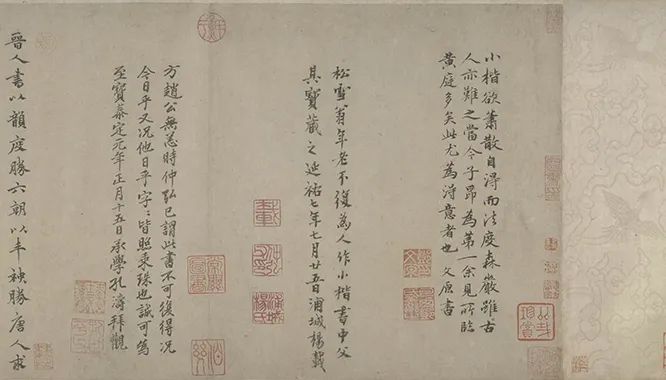 小楷欲蕭散自得而法度森嚴雖古
人亦難之當今子昂為第一余見所臨
黃庭多矣此尤為得意者也 文原書
松雪翁年老不復為人作小楷書中父
其寶藏之延祐七年七月廿五日浦城楊載
方趙公無恙時仲弘已謂此書不可復得況
今日乎又況他日乎字〻皆照乘珠也誠可為
至寶泰定元年正月十五日承學孔濤拜觀
晉人書以韻度勝六朝以丰神勝唐人求